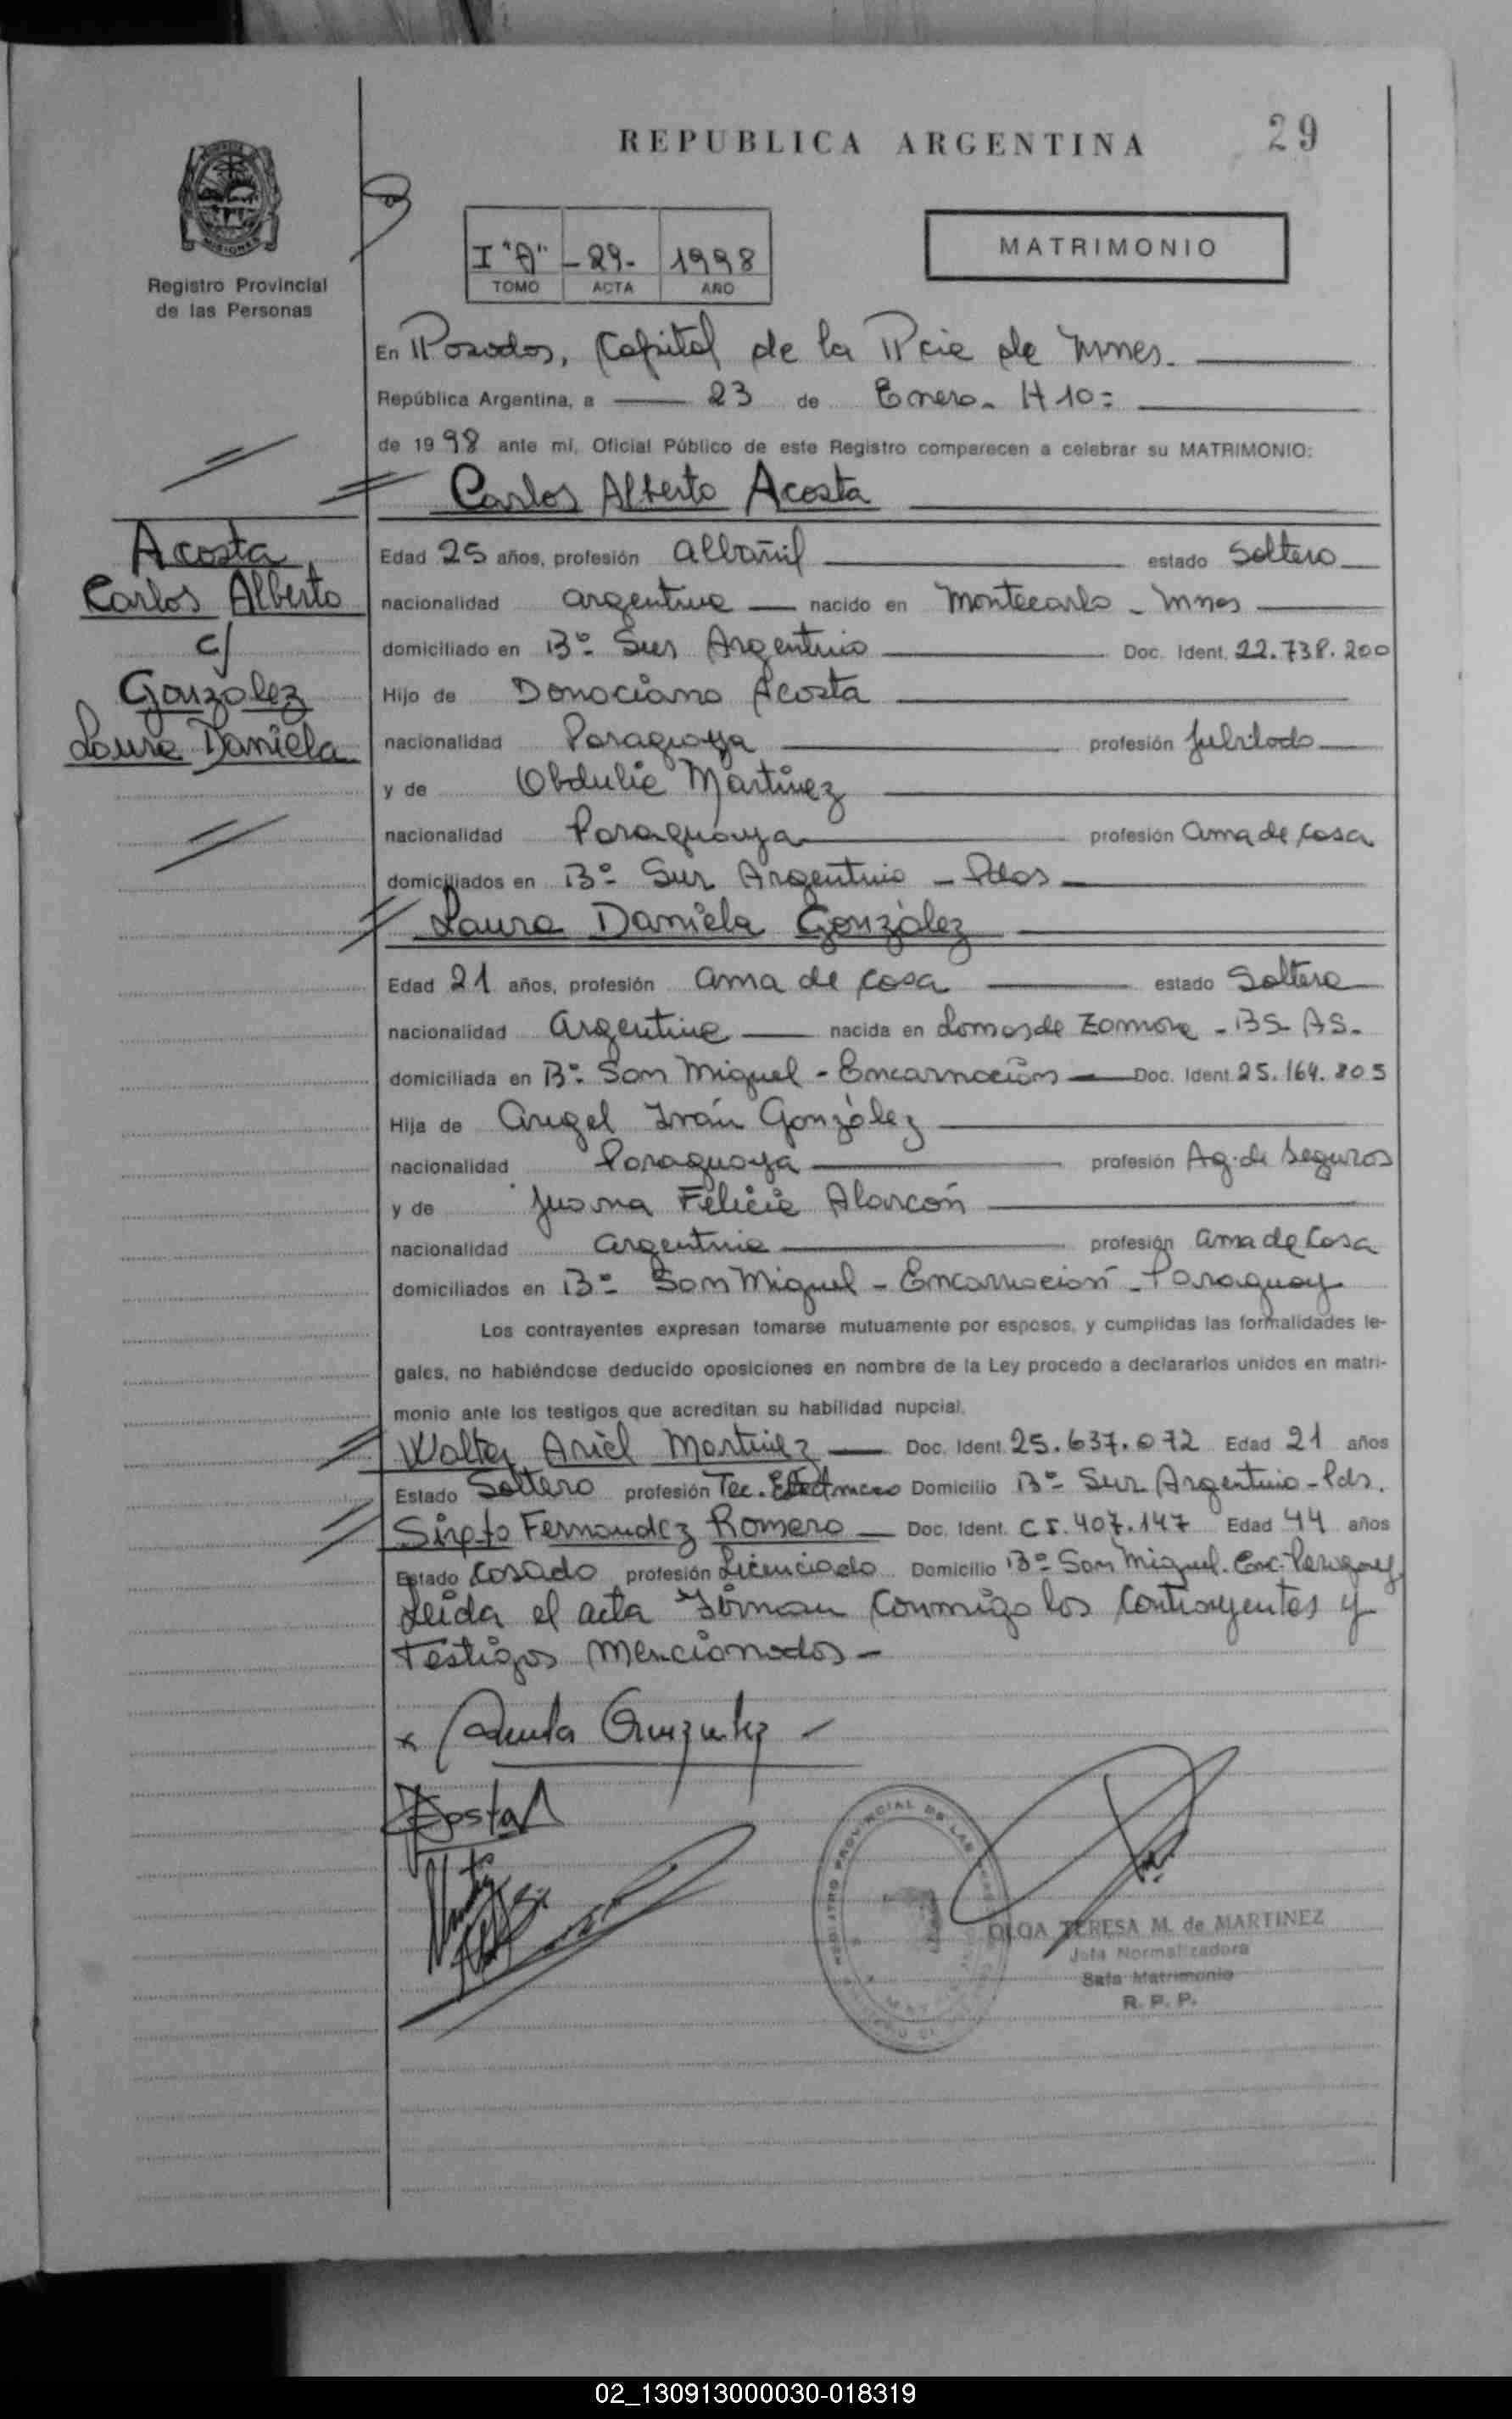 REPUBLICA ARGENTINA
29
Registro Provincial
de las Personas
I "A" - 29 - 1998
TOMO ACTA AÑO
MATRIMONIO
En Posadas, Capital de la Pcia de Mnes.
República Argentina, a 23 de Enero - H 10:
de 1998 ante mí, Oficial Público de este Registro comparecen a celebrar su MATRIMONIO:
Carlos Alberto Acosta
Acosta
Carlos Alberto
c/
González
Laura Daniela
Edad 25 años, profesión albañil estado Soltero
nacionalidad argentina nacido en Montecarlo - Mnes
domiciliado en B° Sur Argentino Doc. Ident. 22.738.200
Hijo de Donociano Acosta
nacionalidad Paraguaya profesión Jubilado
y de Obdulia Martínez
nacionalidad Paraguaya profesión ama de casa
domiciliados en B° Sur Argentino - Pdas
Laura Daniela González
Edad 21 años, profesión ama de casa estado Soltera
nacionalidad argentina nacida en Lomas de Zamora - BS. AS.
domiciliada en B° San Miguel - Encarnación Doc. Ident. 25.164.805
Hija de Angel Iván González
nacionalidad Paraguaya profesión Ag. de Seguros
y de Juana Felicia Alarcón
nacionalidad argentina profesión ama de casa
domiciliados en B° San Miguel - Encarnación - Paraguay
Los contrayentes expresan tomarse mutuamente por esposos, y cumplidas las formalidades le-
gales, no habiéndose deducido oposiciones en nombre de la Ley procedo a declararlos unidos en matri-
monio ante los testigos que acreditan su habilidad nupcial.
Walter Ariel Martínez Doc. Ident. 25.637.072 Edad 21 años
Estado Soltero profesión Tec. Domicilio B° Sur Argentino - Pds.
Fernandez Romero Doc. Ident. CI. 407.147 Edad 44 años
Estado Casado profesión Licenciado Domicilio B° San Miguel - Enc. Paraguay
Leida el acta firman conmigo los contrayentes y
testigos mencionados -
OLGA TERESA M. de MARTINEZ
Jefa Normalizadora
Sala Matrimonio
R. P. P.
02_130913000030-018319